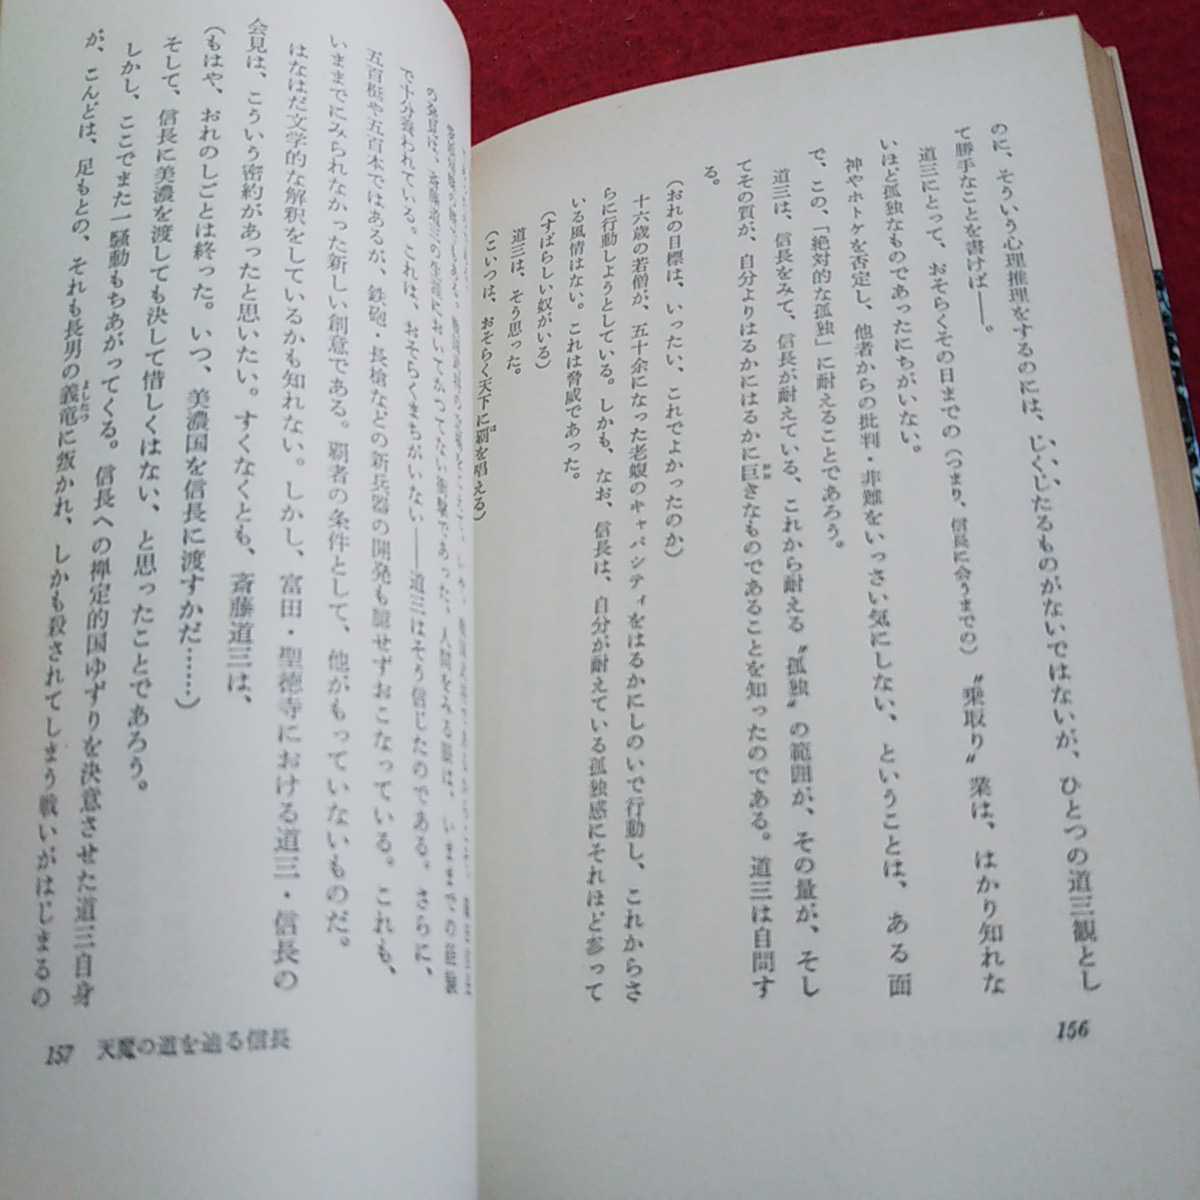 のに、そういう心理推理をするのには、じくじたるものがないではないが、ひとつの道三観とし
て勝手なことを書けば――。
道三にとって、おそらくその日までの（つまり、信長に会うまでの）〝乗取り〟業は、はかり知れな
いほど孤独なものであったにちがいない。
神やホトケを否定し、他者からの批判・非難をいっさい気にしない、ということは、ある面
で、この、「絶対的な孤独」に耐えることであろう。
道三は、信長をみて、信長が耐えている、これから耐える〝孤独〟の範囲が、その量が、そし
てその質が、自分よりはるかにはるかに巨きなものであることを知ったのである。道三は自問す
る。
（おれの目標は、いったい、これでよかったのか）
十六歳の若僧が、五十余になった老蝮のキャパシティをはるかにしのいで行動し、これからさ
らに行動しようとしている。しかも、なお、信長は、自分が耐えている孤独感にそれほど参って
いる風情はない。これは脅威であった。
（すばらしい奴がいる）
道三は、そう思った。
（こいつは、おそらく天下に覇を唱える）
156
の発見は、斎藤道三の生涯においてかつてない衝撃であった。人間をみる眼は、いままでの経験
で十分養われている。これは、おそらくまちがいない――道三はそう信じたのである。さらに、
五百梃や五百本ではあるが、鉄砲・長槍などの新兵器の開発も臆せずおこなっている。これも、
いままでにみられなかった新しい創意である。覇者の条件として、他がもっていないものだ。
はなはだ文学的な解釈をしているかも知れない。しかし、富田・聖徳寺における道三・信長の
会見は、こういう密約があったと思いたい。すくなくとも、斎藤道三は、
（もはや、おれのしごとは終った。いつ、美濃国を信長に渡すかだ……）
そして、信長に美濃を渡しても決して惜しくはない、と思ったことであろう。
しかし、ここでまた一騒動もちあがってくる。信長への禅定的国ゆずりを決意させた道三自身
が、こんどは、足もとの、それも長男の義竜に叛かれ、しかも殺されてしまう戦いがはじまるの
157 天魔の道を辿る信長